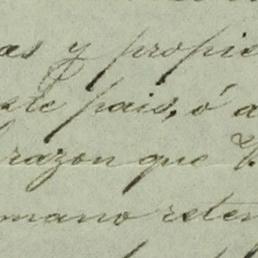 as y propie
ste pais, ó a
razon que V.
mano reten